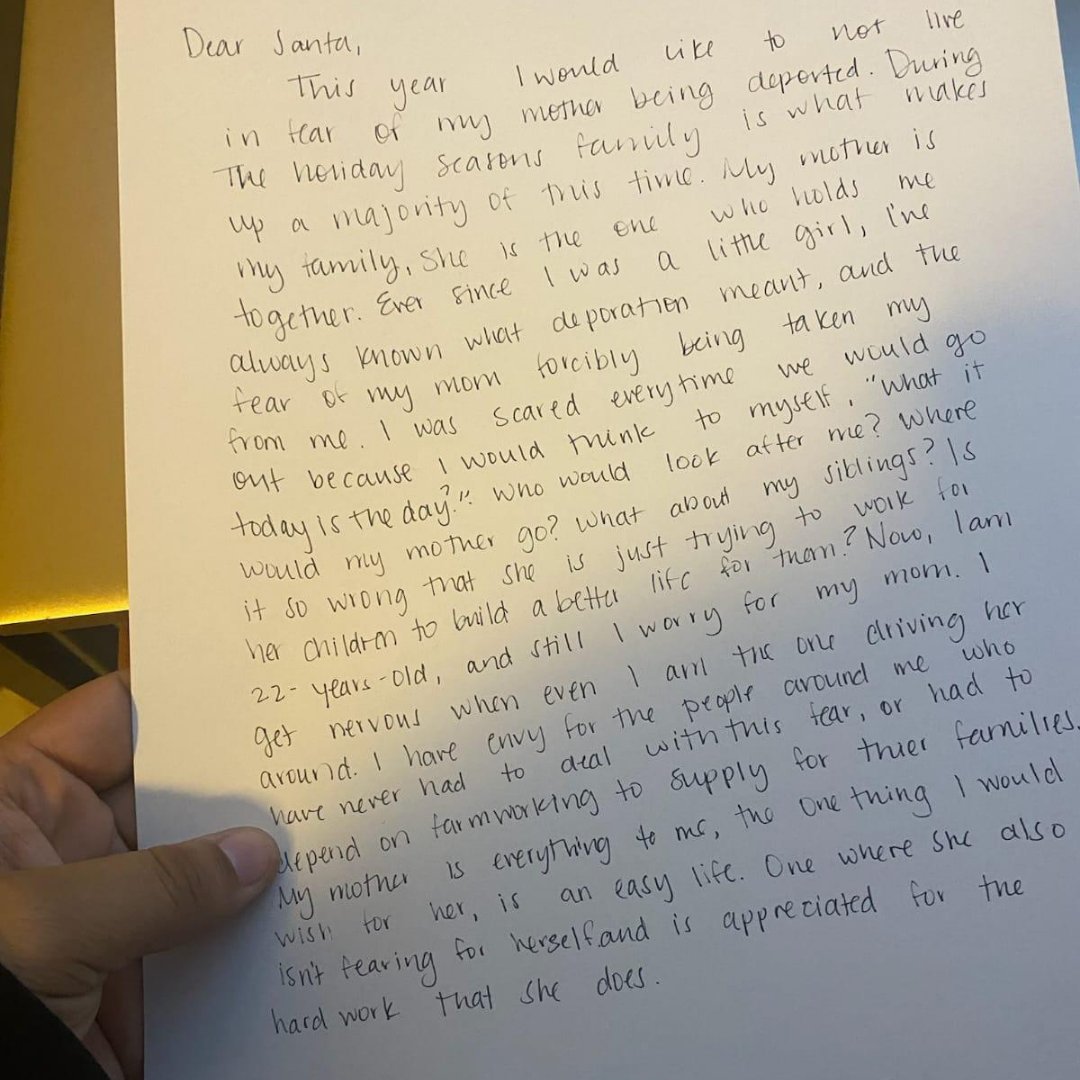 Dear Santa,
This year I would like to not live
in fear of my mother being deported. During
The holiday seasons family is what makes
up a majority of this time. My mother is
my family, she is the one who holds me
together. Ever since I was a little girl, I've
always known what deporation meant, and the
fear of my mom forcibly being taken my
from me. I was scared everytime we would go
out because I would think to myself, "what it
today is the day?". Who would look after me? Where
would my mother go? What about my siblings? Is
it so wrong that she is just trying to work for
her children to build a better life for them? Now, I am
22-years-old, and still I worry for my mom. I
get nervous when even I am the one driving her
around. I have envy for the people around me who
have never had to deal with this fear, or had to
depend on farmworking to supply for thier families.
My mother is everything to me, the one thing I would
wish for her, is an easy life. One where she also
isn't fearing for herself and is appreciated for the
hard work that she does.